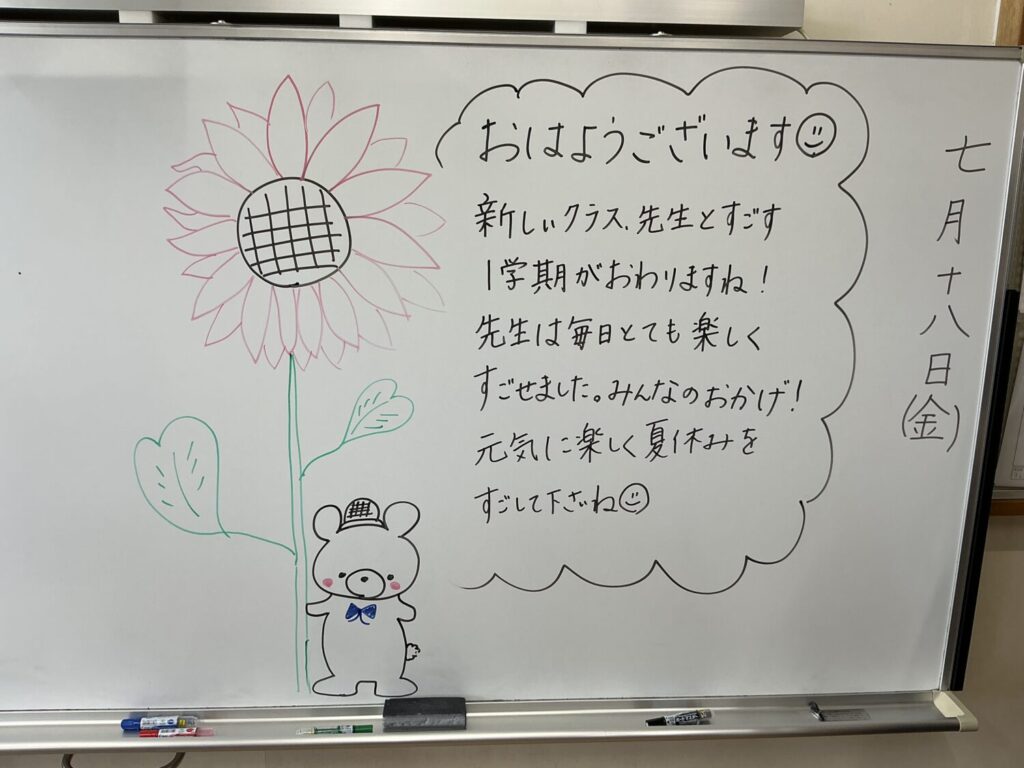 おはようございます
新しいクラス、先生とすごす
1学期がおわりますね！
先生は毎日とても楽しく
すごせました。みんなのおかげ！
元気に楽しく夏休みを
すごして下さいね
七月十八日(金)